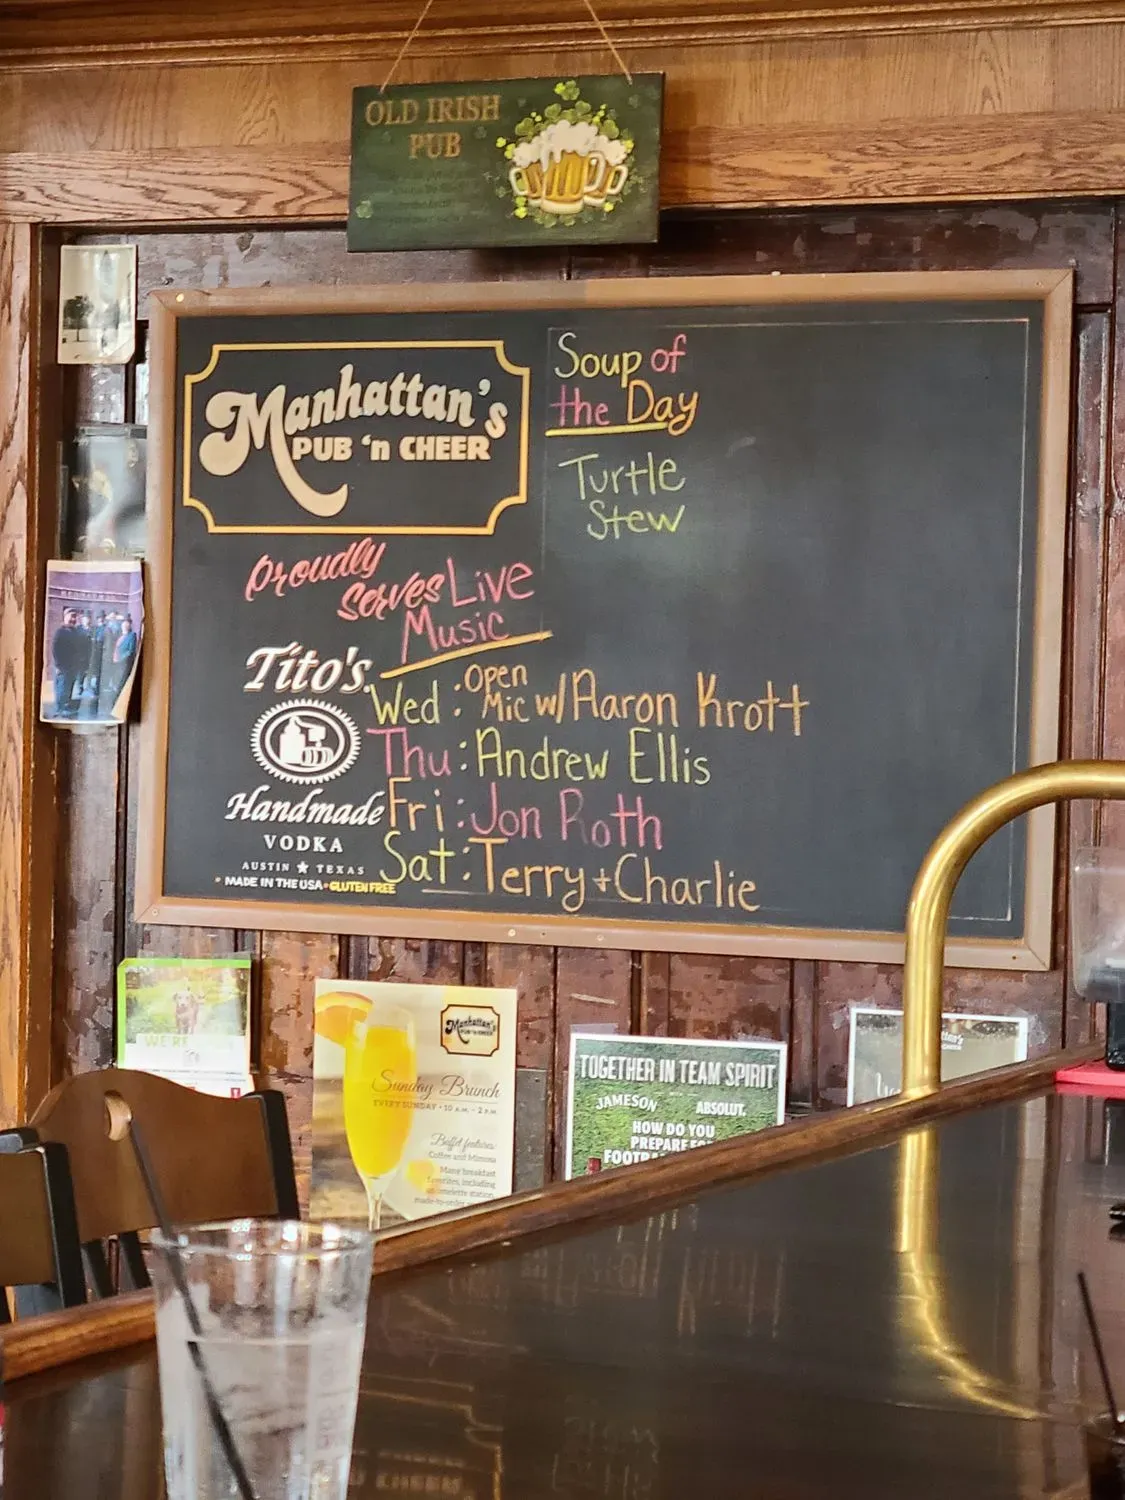 OLD IRISH
PUB
Manhattan's
PUB 'n CHEER
Soup of
the Day
Turtle
Stew
Proudly
Serves
Live
Music
Tito's
Handmade
VODKA
AUSTIN ★ TEXAS
MADE IN THE USA • GLUTEN FREE
Wed : Open Mic w/ Aaron Krott
Thu : Andrew Ellis
Fri : Jon Roth
Sat : Terry + Charlie
WE'RE
Manhattan's
PUB 'n CHEER
Sunday Brunch
EVERY SUNDAY • 10 A.M. - 2 P.M.
Buffet features:
Coffee and Mimosa
Many breakfast
favorites, including
omelette station,
made-to-order
TOGETHER IN TEAM SPIRIT
JAMESON ABSOLUT.
HOW DO YOU
PREPARE FO
FOOTBA